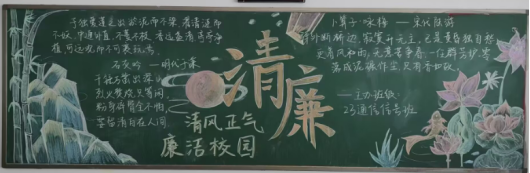 予独爱莲之出淤泥而不染,濯清涟而
不妖,中通外直,不蔓不枝,香远益清,亭亭净
植,可远观而不可亵玩焉。
石灰吟 — 明代于谦
千锤万凿出深山
烈火焚烧若等闲
粉身碎骨全不怕
要留清白在人间
清廉
清风正气
廉洁校园
卜算子·咏梅 — 宋代陆游
驿外断桥边,寂寞开无主,已是黄昏独自愁
更着风和雨,无意苦争春,一任群芳妒,零
落成泥碾作尘,只有香如故。
— 主办班级:
23通信信号班